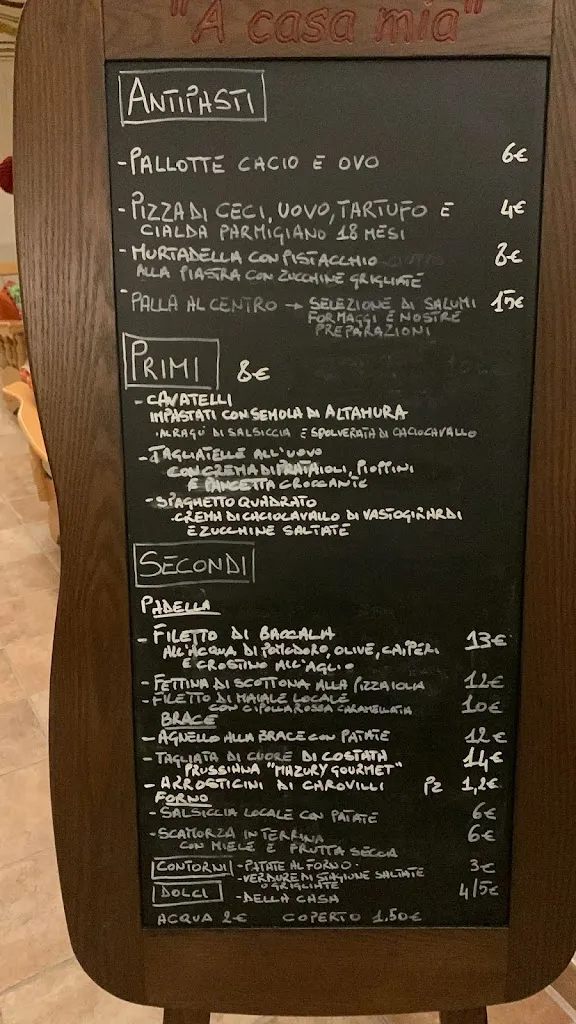 "A casa mia"
ANTIPASTI
- PALLOTTE CACIO E OVO 6€
- PIZZA DI CECI, UOVO, TARTUFO E 4€
CIALDA PARMIGIANO 18 MESI
- MURTADELLA CON PISTACCHIO 8€
ALLA PIASTRA CON ZUCCHINE GRIGLIATE
- PALLA AL CENTRO → SELEZIONE DI SALUMI 15€
FORMAGGI E NOSTRE
PREPARAZIONI
PRIMI 8€
- CAVATELLI
IMPASTATI CON SEMOLA DI ALTAMURA
AL RAGU' DI SALSICCIA E SPOLVERATA DI CACIOCAVALLO
- TAGLIATELLE ALL'UOVO
CON CREMA DI PRATAIOLI, PIOPPINI
E PANCETTA CROCCANTE
- SPAGHETTO QUADRATO
CREMA DI CACIOCAVALLO DI VASTOGIRARDI
E ZUCCHINE SALTATE
SECONDI
PADELLA
- FILETTO DI BACCALA 13€
ALL'ACQUA DI POMODORO, OLIVE, CAPPERI
E CROSTINO ALL'AGLIO
- FETTINA DI SCOTTONA ALLA PIZZAIOLA 12€
- FILETTO DI MAIALE LOCALE 10€
CON CIPOLLA ROSSA CARAMELLATA
BRACE
- AGNELLO ALLA BRACE CON PATATE 12€
- TAGLIATA DI CUORE DI COSTATA 14€
PRUSSIANA "MAZURY GOURMET"
- ARROSTICINI DI CAROVILLI PZ 1,2€
FORNO
- SALSICCIA LOCALE CON PATATE 6€
- SCAMORZA IN TERRINA 6€
CON MIELE E FRUTTA SECCA
CONTORNI - PATATE AL FORNO 3€
- VERDURE DI STAGIONE SALTATE
O GRIGLIATE
DOLCI - DELLA CASA 4/5€
ACQUA 2€ COPERTO 1.50€